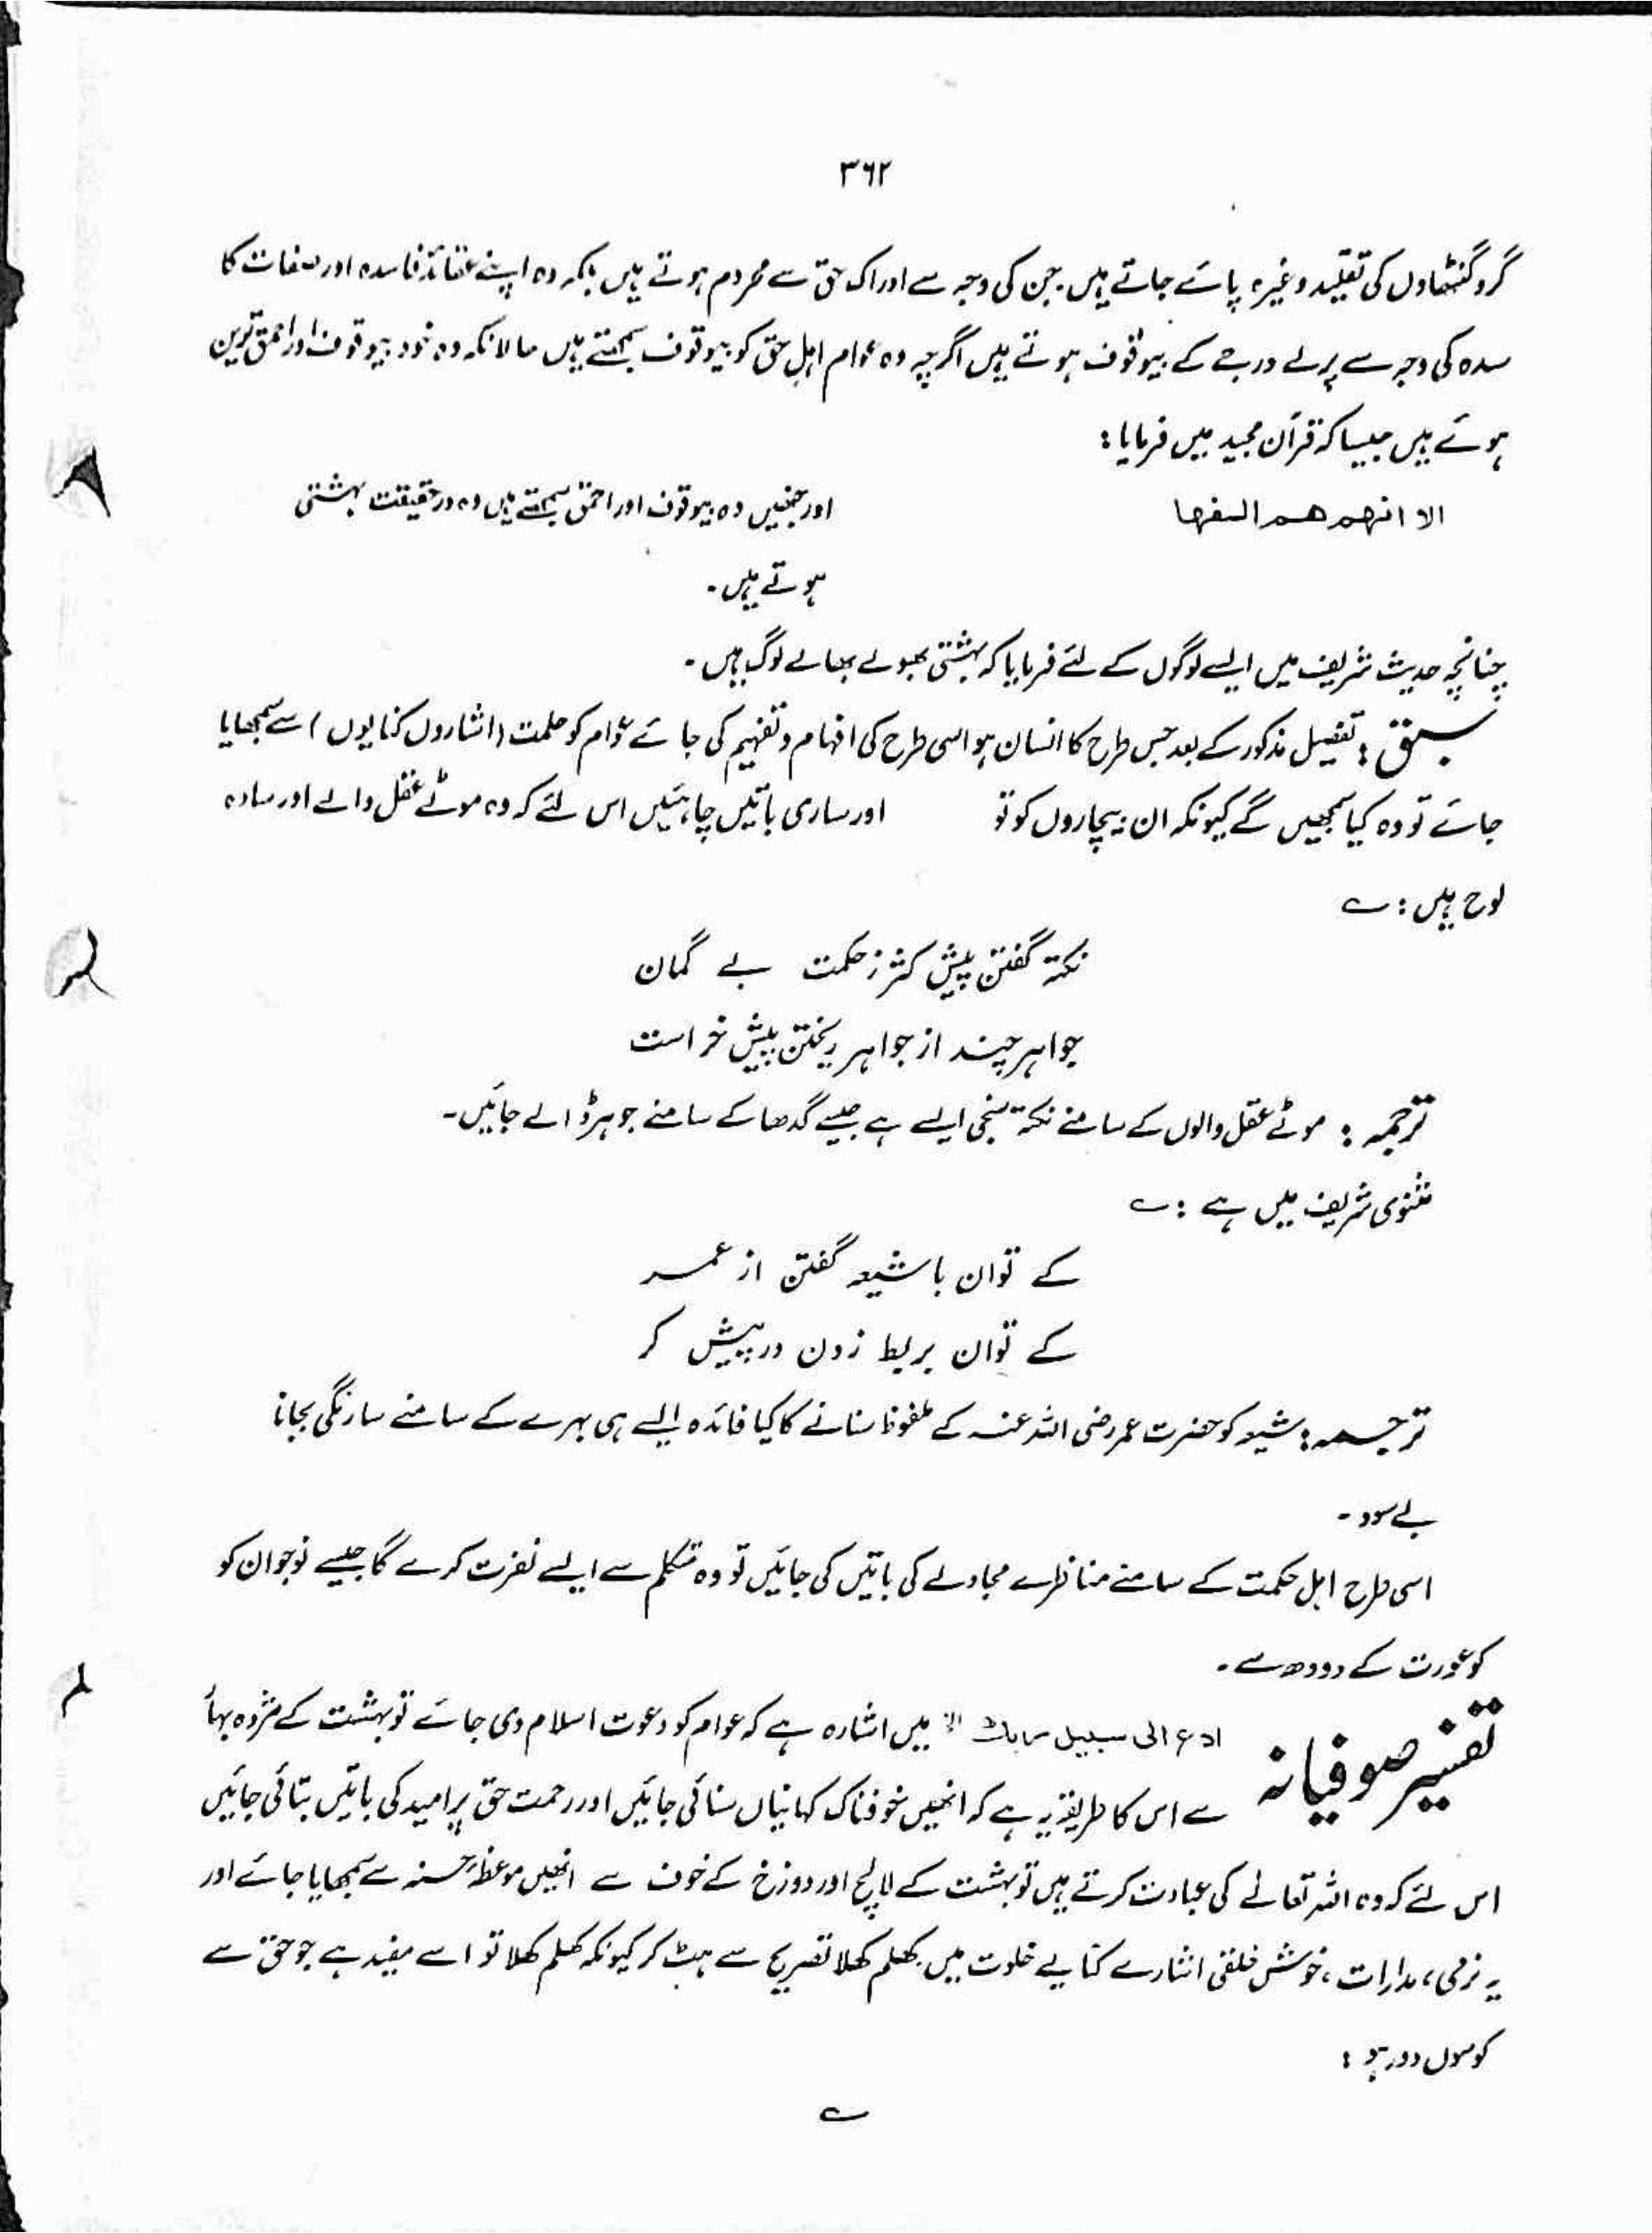 ۳۶۲
گرو گنٹھاوں کی تقلید وغیرہ پائے جاتے ہیں جن کی وجہ سے ادراک حق سے محروم ہوتے ہیں بلکہ وہ اپنے عقائد فاسدہ اور صفات کا
سدہ کی وجہ سے پرلے درجے کے بیوقوف ہوتے ہیں اگرچہ وہ عوام اہل حق کو بیوقوف سمجھتے ہیں حالانکہ وہ خود بیوقوف اور احمق ترین
ہوئے ہیں جیسا کہ قرآن مجید میں فرمایا :
الا انهم هم السفها
اور جنھیں وہ بیوقوف اور احمق سمجھتے ہیں وہ درحقیقت بہشتی
ہوتے ہیں ۔
چنانچہ حدیث شریف میں ایسے لوگوں کے لئے فرمایا کہ بہشتی بھولے بھالے لوگ ہیں ۔
سبق : تفصیل مذکور کے بعد جس طرح کا انسان ہو اسی طرح کی افہام و تفہیم کی جائے عوام کو حلمت (اشاروں کنایوں) سے سمجھایا
جائے تو وہ کیا سمجھیں گے کیونکہ ان بیچاروں کو تو اور ساری باتیں چاہئیں اس لئے کہ وہ موٹے عقل والے اور سادہ
لوح ہیں : ؎
نکتہ گفتن پیش کثر زحکمت بے گمان
جواہر چند از جواہر ریختن پیش خر است
ترجمہ : موٹے عقل والوں کے سامنے نکتہ سنجی ایسے ہے جیسے گدھا کے سامنے جوہر ڈالے جائیں ۔
مثنوی شریف میں ہے : ؎
کے توان با شیعہ گفتن از عمر
کے توان بربط زدن در پیش کر
ترجمہ : شیعہ کو حضرت عمر رضی اللہ عنہ کے ملفوظ سنانے کا کیا فائدہ ایسے ہی بہرے کے سامنے سارنگی بجانا
بے سود ۔
اسی طرح اہل حکمت کے سامنے مناظرے مجادلے کی باتیں کی جائیں تو وہ متکلم سے ایسے نفرت کرے گا جیسے نوجوان کو
کو عورت کے دودھ سے ۔
تفسیر صوفیانہ
ادع الی سبیل ربك الخ میں اشارہ ہے کہ عوام کو دعوت اسلام دی جائے تو بہشت کے مژدہ بہا
سے اس کا طریقہ یہ ہے کہ انھیں خوفناک کہانیاں سنائی جائیں اور رحمت حق پر امید کی باتیں بتائی جائیں
اس لئے کہ وہ اللہ تعالےٰ کی عبادت کرتے ہیں تو بہشت کے لالچ اور دوزخ کے خوف سے انھیں موعظہ حسنہ سے سمجھایا جائے اور
یہ نرمی ، مدارات ، خوش خلقی اشارے کنایے خلوت میں کھلم کھلا تصریح سے ہٹ کر کیونکہ کھلم کھلا تو اسے مفید ہے جو حق سے
کوسوں دور ہو :
؎